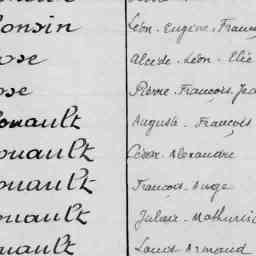 onsin Léon - Eugène - Franç
ose Alcide - Léon - Elie
ose Pierre - François - Jea
ouault Auguste - François
ouault César - Alexandre
ouault François - Ange
ouault Julien - Mathurin
ouault Louis - Armand